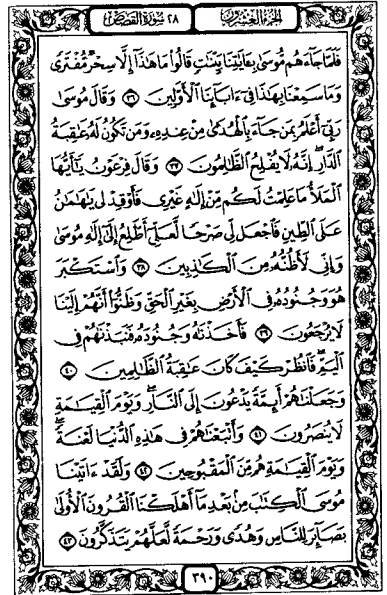 الجزء العشرون ٢٨ سورة القصص
فَلَمَّا جَآءَهُم مُّوسَىٰ بِـَٔايَٰتِنَا بَيِّنَٰتٍ قَالُوا۟ مَا هَٰذَآ إِلَّا سِحْرٌ مُّفْتَرًى
وَمَا سَمِعْنَا بِهَٰذَا فِىٓ ءَابَآئِنَا ٱلْأَوَّلِينَ ٣٦ وَقَالَ مُوسَىٰ
رَبِّىٓ أَعْلَمُ بِمَن جَآءَ بِٱلْهُدَىٰ مِنْ عِندِهِۦ وَمَن تَكُونُ لَهُۥ عَٰقِبَةُ
ٱلدَّارِ ۖ إِنَّهُۥ لَا يُفْلِحُ ٱلظَّٰلِمُونَ ٣٧ وَقَالَ فِرْعَوْنُ يَٰٓأَيُّهَا
ٱلْمَلَأُ مَا عَلِمْتُ لَكُم مِّنْ إِلَٰهٍ غَيْرِى فَأَوْقِدْ لِى يَٰهَٰمَٰنُ
عَلَى ٱلطِّينِ فَٱجْعَل لِّى صَرْحًا لَّعَلِّىٓ أَطَّلِعُ إِلَىٰٓ إِلَٰهِ مُوسَىٰ
وَإِنِّى لَأَظُنُّهُۥ مِنَ ٱلْكَٰذِبِينَ ٣٨ وَٱسْتَكْبَرَ
هُوَ وَجُنُودُهُۥ فِى ٱلْأَرْضِ بِغَيْرِ ٱلْحَقِّ وَظَنُّوٓا۟ أَنَّهُمْ إِلَيْنَا
لَا يُرْجَعُونَ ٣٩ فَأَخَذْنَٰهُ وَجُنُودَهُۥ فَنَبَذْنَٰهُمْ فِى
ٱلْيَمِّ ۖ فَٱنظُرْ كَيْفَ كَانَ عَٰقِبَةُ ٱلظَّٰلِمِينَ ٤٠
وَجَعَلْنَٰهُمْ أَئِمَّةً يَدْعُونَ إِلَى ٱلنَّارِ ۖ وَيَوْمَ ٱلْقِيَٰمَةِ
لَا يُنصَرُونَ ٤١ وَأَتْبَعْنَٰهُمْ فِى هَٰذِهِ ٱلدُّنْيَا لَعْنَةً ۖ
وَيَوْمَ ٱلْقِيَٰمَةِ هُم مِّنَ ٱلْمَقْبُوحِينَ ٤٢ وَلَقَدْ ءَاتَيْنَا
مُوسَى ٱلْكِتَٰبَ مِنۢ بَعْدِ مَآ أَهْلَكْنَا ٱلْقُرُونَ ٱلْأُولَىٰ
بَصَآئِرَ لِلنَّاسِ وَهُدًى وَرَحْمَةً لَّعَلَّهُمْ يَتَذَكَّرُونَ ٤٣
٣٩٠